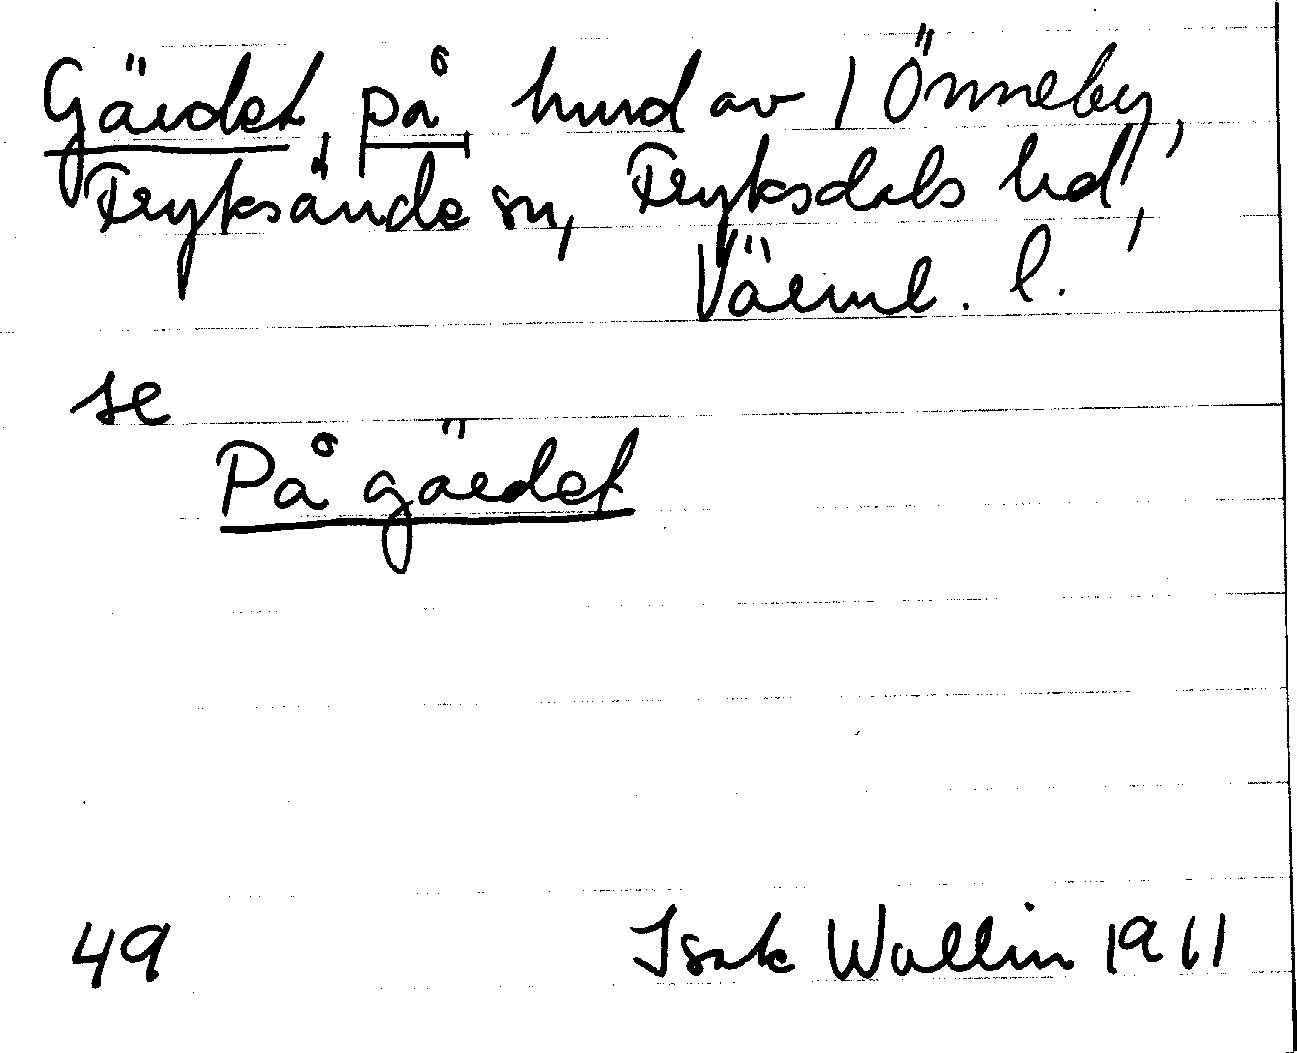 Gärdet, på, hmd av 1 Önneby,
Fryksände sn, Fryksdals hd,
Värml. l.
se
På gärdet
49 Isak Wallin 1911